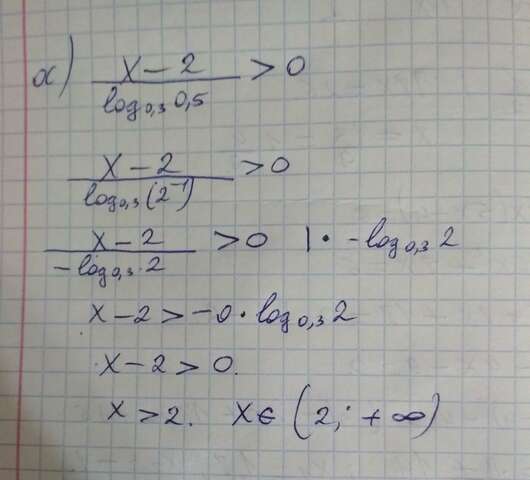 а) (x-2)/(log₀,₃ 0,5) > 0
(x-2)/(log₀,₃(2⁻¹)) > 0
(x-2)/(-log₀,₃ 2) > 0 | · -log₀,₃ 2
x-2 > -0 · log₀,₃ 2
x-2 > 0.
x > 2. x ∈ (2; +∞)